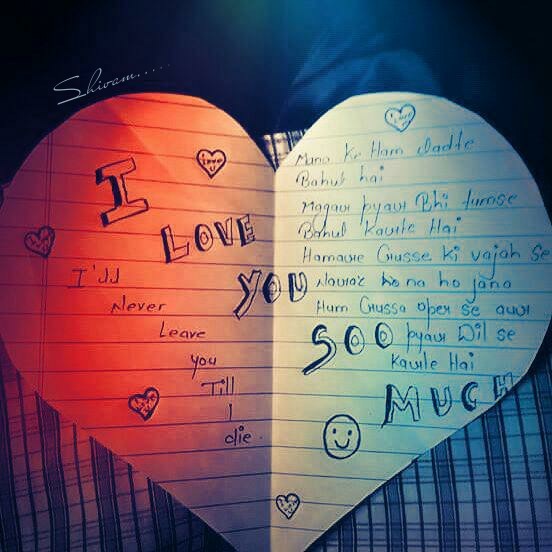 Shivam.....
I
LOVE
YOU
SOO
MUCH
love
U
I'dd
Never
Leave
you
Till
I
die.
Mana Ke Ham Ladte
Bahut hai
Magaur pyaur Bhi tumse
Bahut Kaurte Hai
Hamaure Gusse Ki vajah se
Nauraz ho na ho jana
Hum Gussa oper se aur
pyaur Dil se
Kaurte Hai